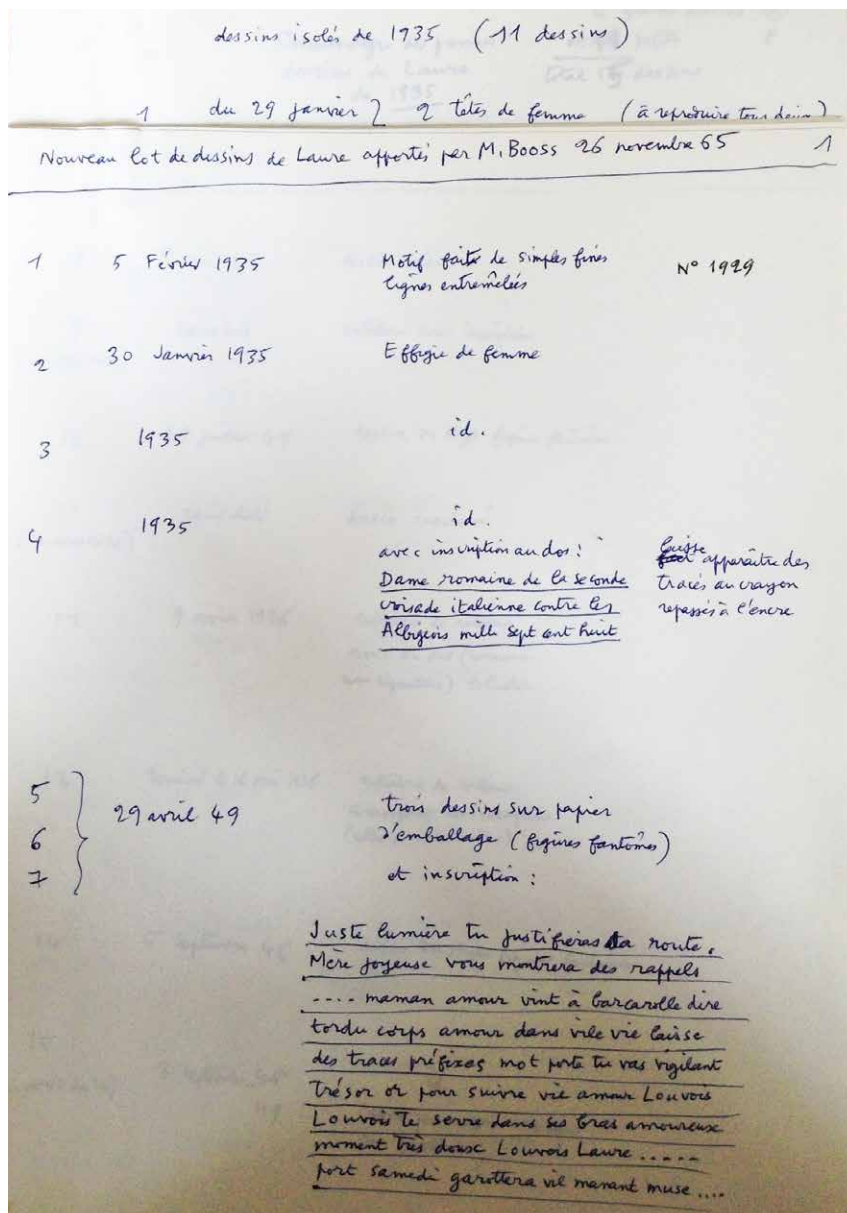 dessins isolés de 1935 (11 dessins)
1 du 29 janvier] 2 têtes de femme (à reproduire tous deux)
Nouveau lot de dessins de Laure apportés par M. Booss 26 novembre 65 1
1 5 Février 1935 Motif faits de simples fines N° 1929
lignes entremêlées
2 30 Janvier 1935 Effigie de femme
3 1935 id.
4 1935 id.
avec inscription au dos : laisse apparaître des
Dame romaine de la seconde tracés au crayon
croisade italienne contre les repassés à l'encre
Albigeois mille sept cent huit
5
6
7
29 avril 49 trois dessins sur papier
d'emballage (figures fantômes)
et inscription :
Juste lumière tu justifieras ta route.
Mère joyeuse vous montrera des rappels
.... maman amour vint à barcarolle dire
tordu corps amour dans vile vie laisse
des traces préfixes mot porte tu vas vigilant
trésor or pour suivre vie amour Louvois
Louvois te serre dans ses bras amoureux
moment très doux Louvois Laure .....
port samedi garottera vil manant muse ....